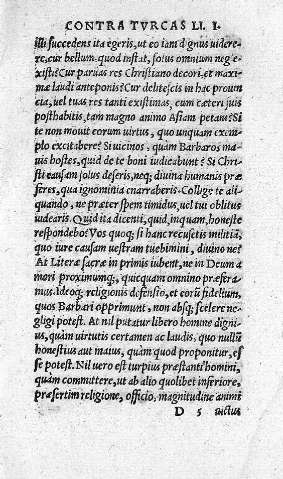 CONTRA TVRCAS LI. I.
illi succedens ita egeris, ut eo iam dignus uidere-
re, cur bellum quod instat, solus omnium negle-
xisti? Cur paruas res Christiano decori, et maxi
mæ laudi anteponis? Cur delitescis in hac prouin
cia, uel tuas res tanti existimas, eum cæteri suis
posthabitis, tam magno animo Asiam petant? Si
te non mouit eorum uirtus, quo unquam exem-
plo excitabere? Si uicinos, quàm Barbaros ma-
uis hostes, quid de te boni iudicabunt? Si Chri-
sti causam solus deseris, neq; diuina humanis præ
feres, qua ignominia cnarraberis? Collige te ali-
quando, ne præter spem timidus, uel tui oblitus
uidearis. Quid ita dicenti, quid, inquam, honeste
respondebo? Vos quoq; si hanc recusetis militiā,
quo iure causam uestram tuebimini, diuino ne?
At Literæ sacræ in primis iubent, ne in Deum a
mori proximumq;, quicquam omnino præfera-
mus. Ideoq; religionis defensio, et eorū fidelium,
quos Barbari opprimunt, non absq; scelere ne-
gligi potest. At nil putatur libero homine dignī
us, quàm uirtutis certamen ac laudis, quo nullū
honestius aut maius, quàm quod proponitur, es
se potest. Nil uero est turpius præstanti homini,
quàm committere, ut ab alio quolibet inferiore,
præsertim religione, officio, magnitudine animi
D 5 uictus